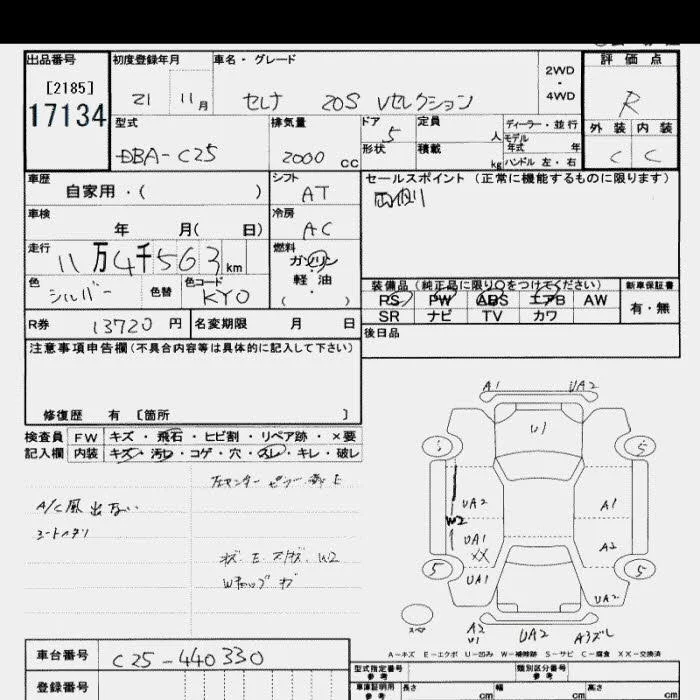 出品番号 初度登録年月 車名・グレード 2WD・4WD 評価点
[2185]
17134 21 11月 セレナ 20S Vセレクション R
型式 排気量 ドア 定員 ディーラー・並行 外装 内装
5 人 モデル年式 年
DBA-C25 2000cc 形状 積載 kg ハンドル 左・右 C C
車歴 シフト セールスポイント (正常に機能するものに限ります)
自家用・( ) AT
車検 冷房
年 月( 日) AC
走行 燃料
11万4千563km ガソリン
軽油
( )
装備品 (純正品に限り○をつけてください) 新車保証書
色 色替 色コード
シルバー KYO PS PW ABS エアB AW 有・無
R券 13720円 名変期限 月 日 SR ナビ TV カワ
注意事項申告欄(不具合内容等は具体的に記入して下さい) 後日品
修復歴 有 [箇所 ]
検査員 FW キズ・飛石・ヒビ割・リペア跡・×要
記入欄 内装 キズ・汚レ・コゲ・穴・スレ・キレ・破レ
A/C風出ない
A1 UA2
U1
5
UA2 A1
W2
UA1 A2
XX
5 UA1 5
UA2
A2 UA2 A3ズレ
U1
A-キズ E-エクボ U-凹み W-補修跡 S-サビ C-腐食 XX-交換済
車台番号 C25-440330
型式指定番号 参考 類別区分番号 参考
登録番号 車庫証明用 参考 長さ cm 幅 cm 高さ cm